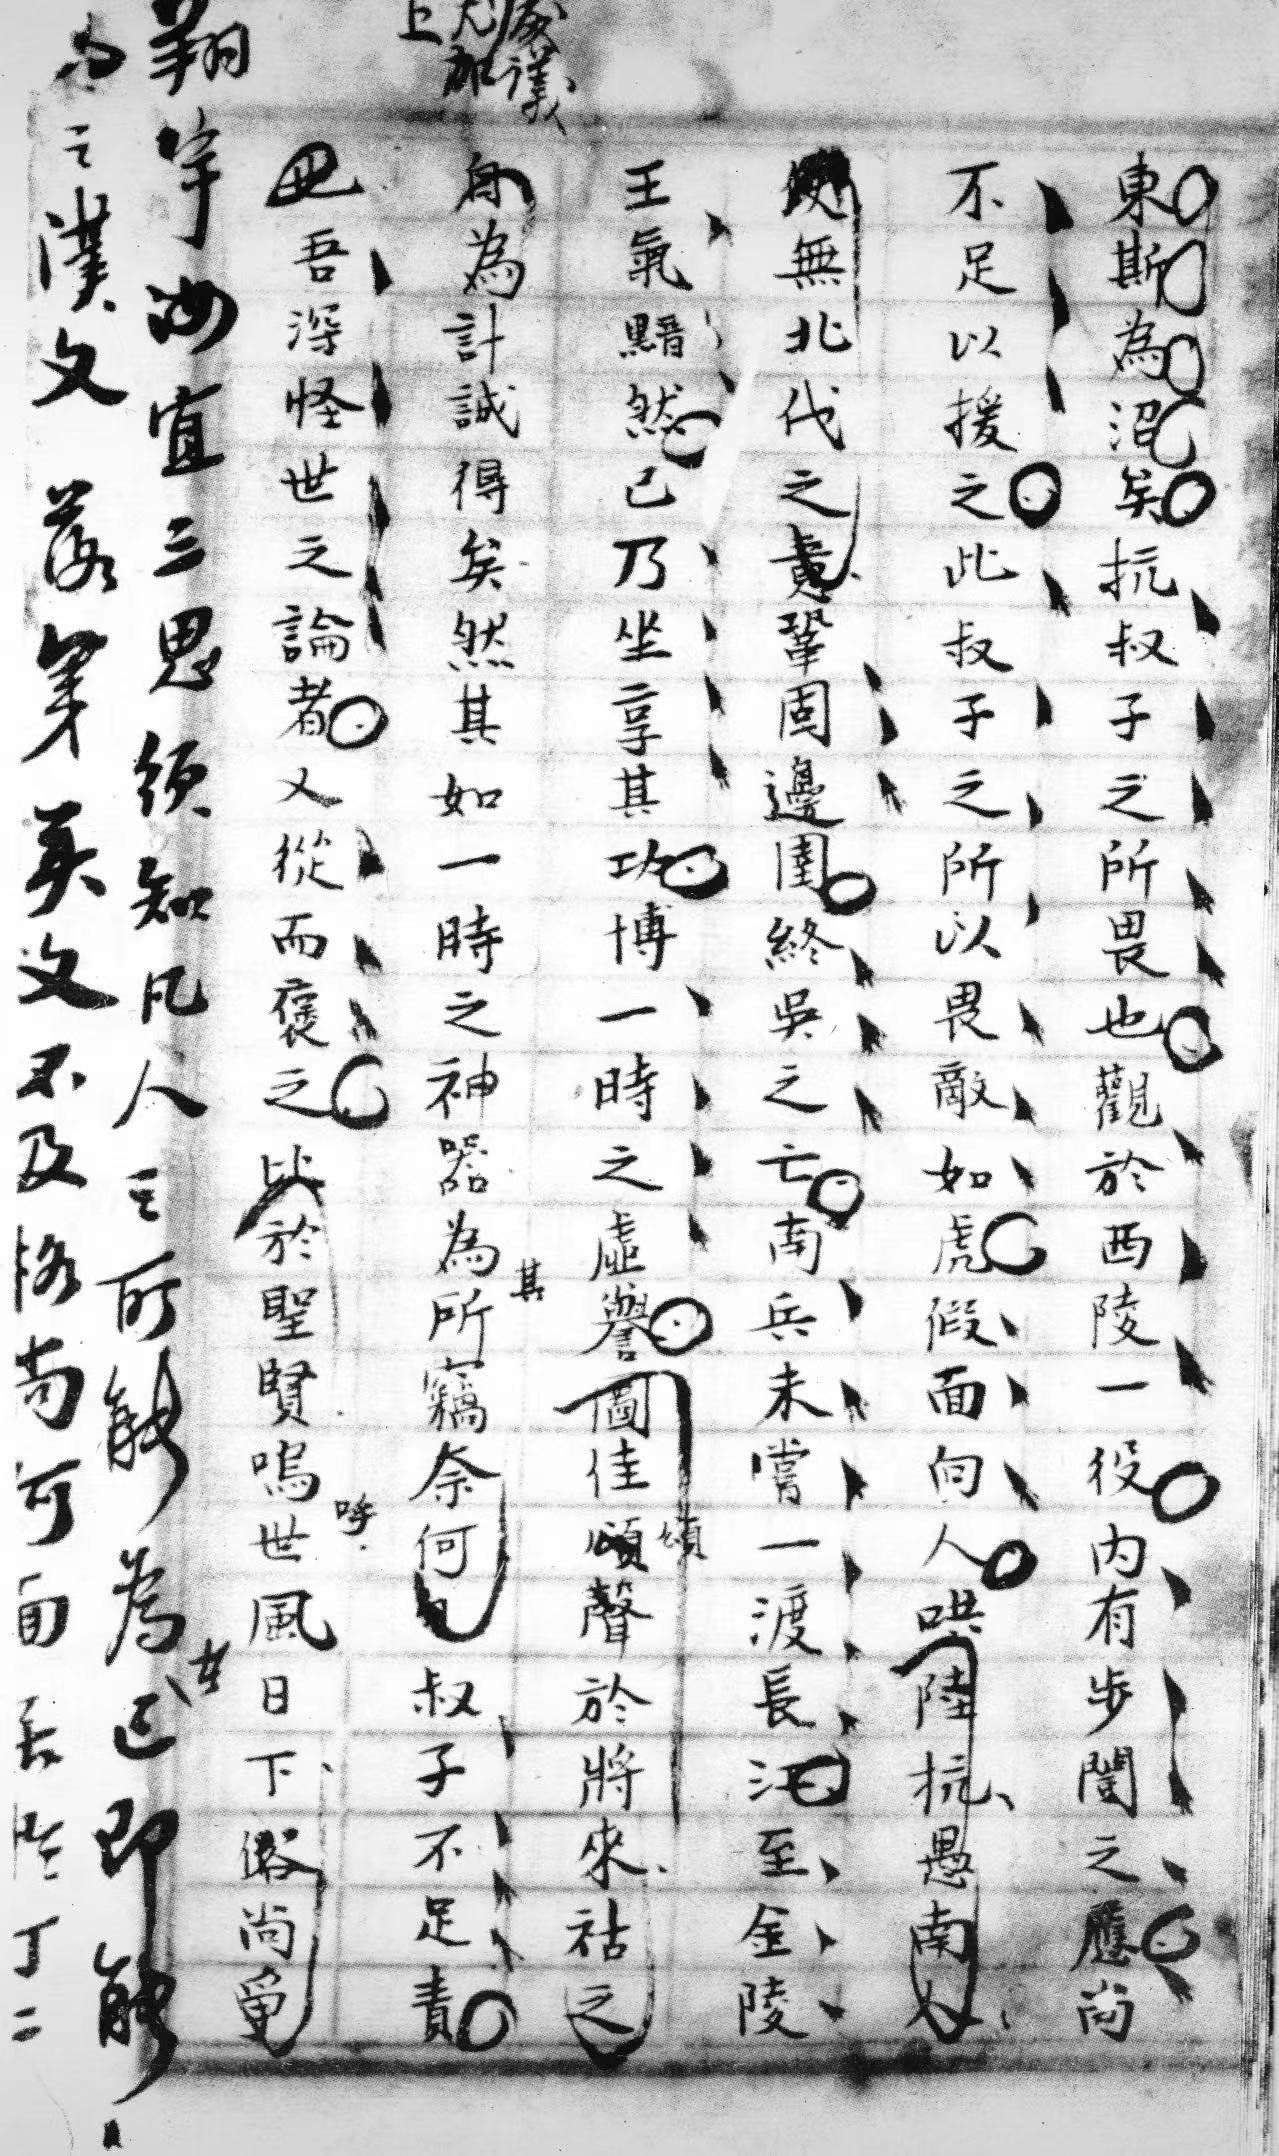 威議
尤加
上
東斯為沼矣抗叔子之所畏也觀於西陵一役內有步闡之應尚
不足以援之此叔子之所以畏敵如虎假面向人哄陸抗愚南人
使無北伐之責鞏固邊圉終吳之亡南兵未嘗一渡長江至金陵
王氣黯然己乃坐享其功博一時之虛譽圖佳頌聲於將來祜之
頌
身為計誠得矣然其如一時之神器為所竊奈何叔子不足責
其
也吾深怪世之論者又從而褒之比於聖賢嗚世風日下鄉尚爭
呼
翔宇汝宜三思須知凡人之所能為己即能
之漢文 落筆 英文不及格尚可 而 丁二